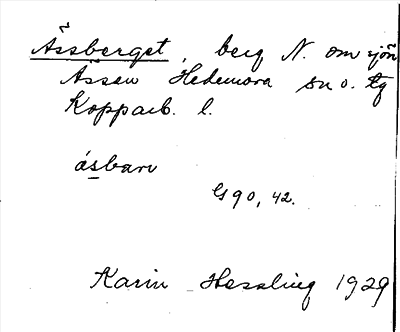 Åssberget, berg N. om sjön
Åssen Hedemora sn o. tg
Kopparb. l.
åsbarv
G90, 42.
Karin Hessling 1929